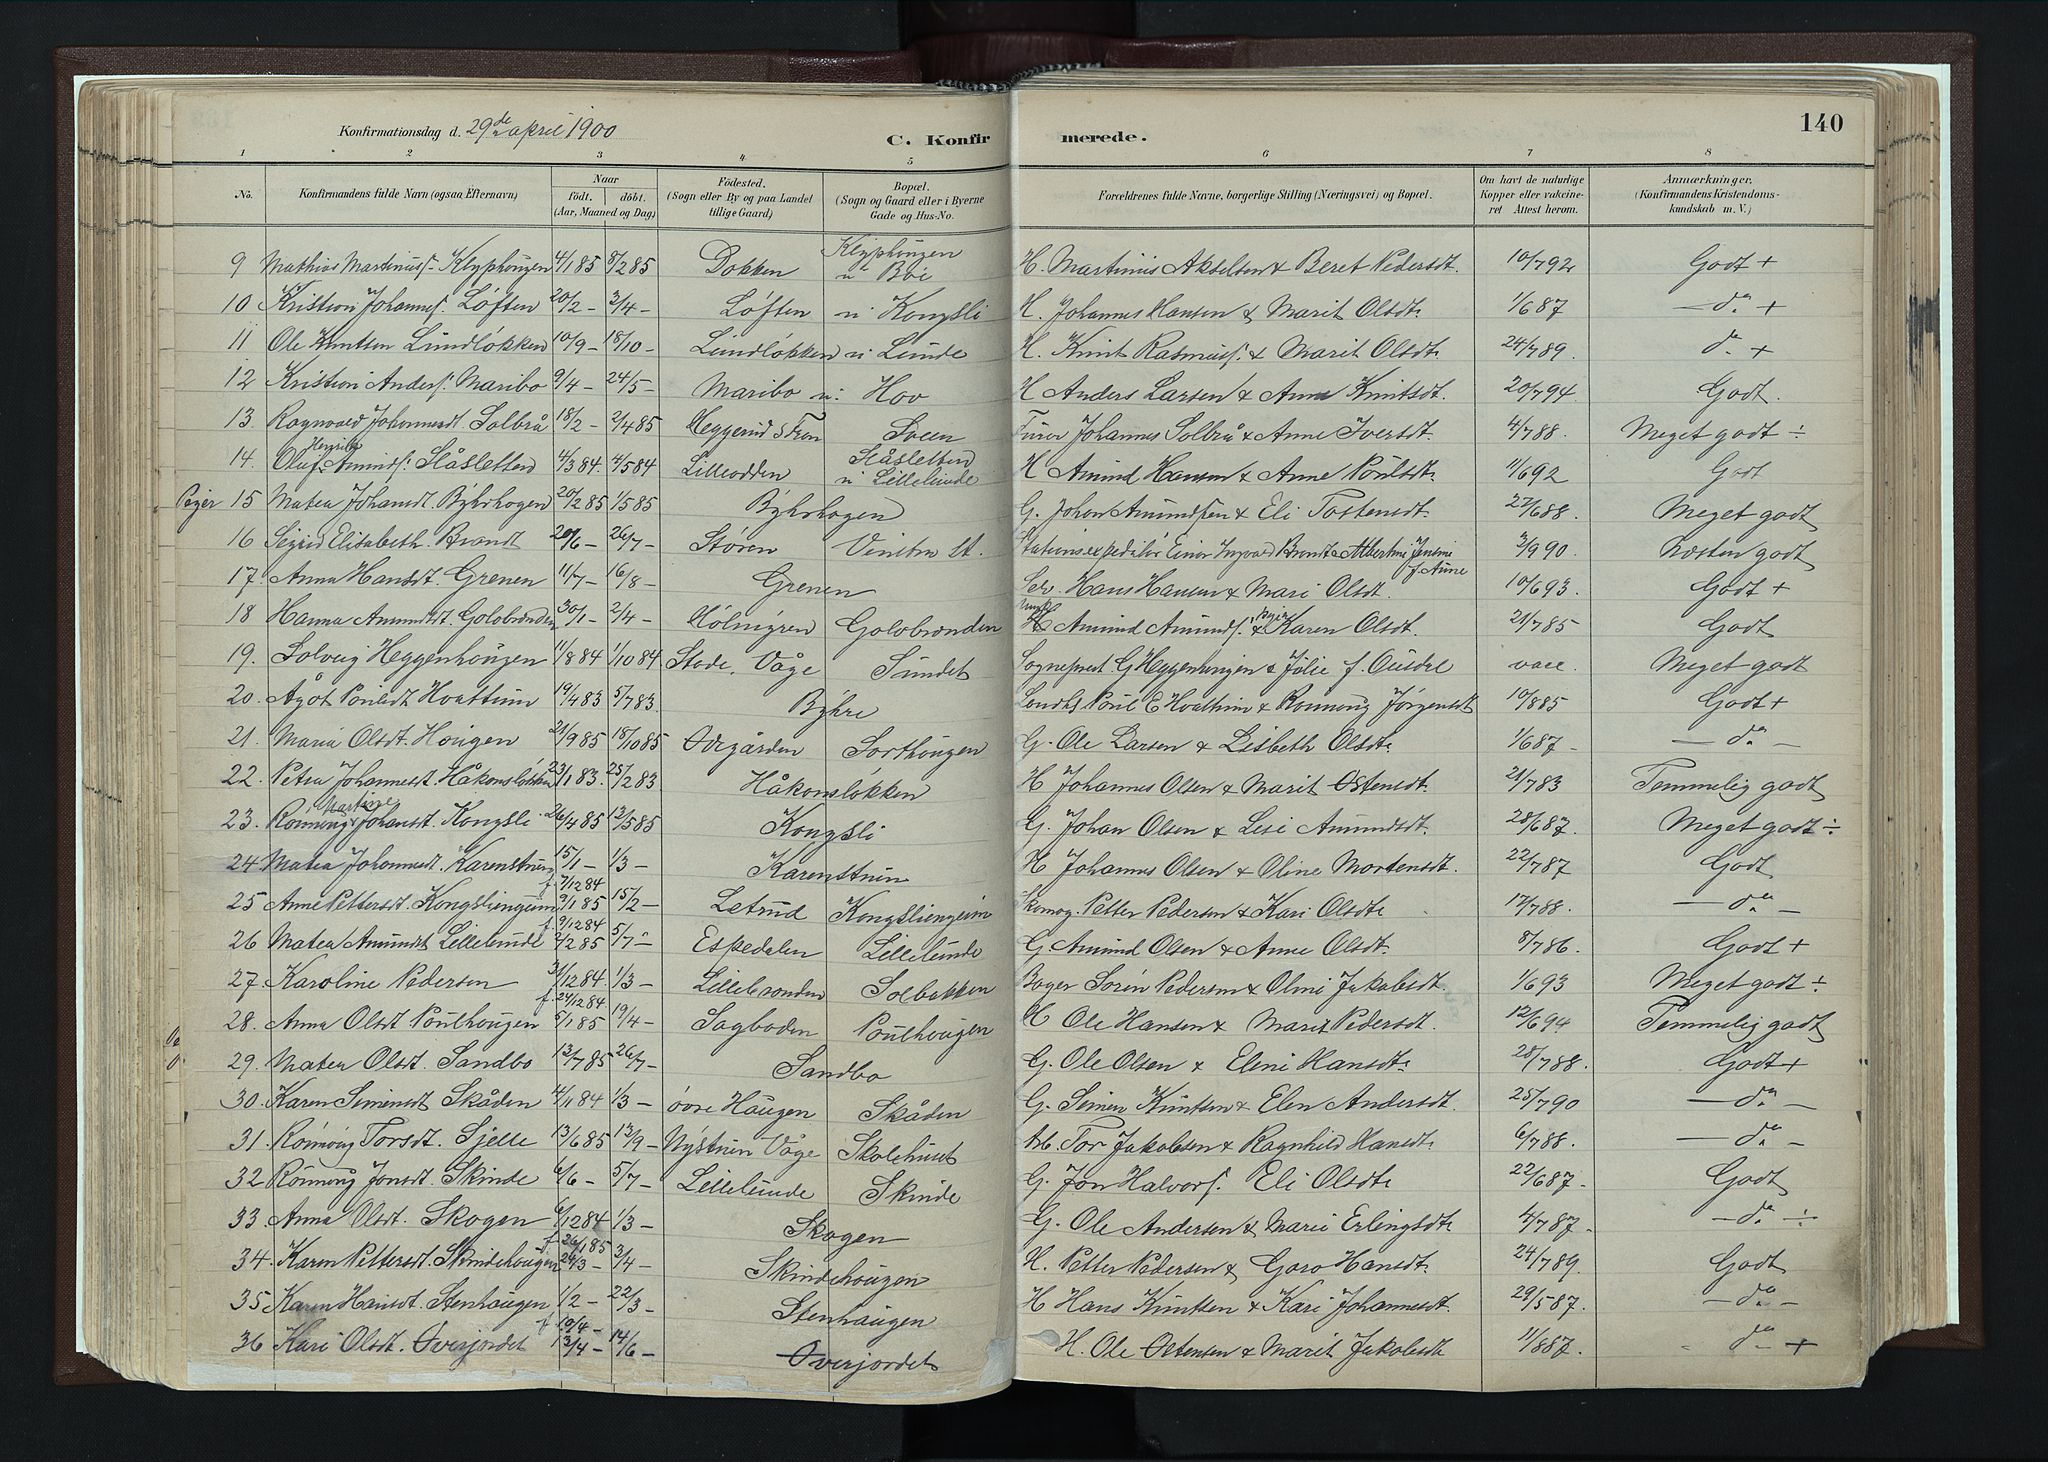 Konfirmationsdag d. 29de april 1900
C. Konfir merede. 140
1 2 3 4 5 6 7 8
No. Konfirmandens fulde Navn (ogsaa Efternavn) Naar født. døbt. (Aar, Maaned og Dag) Fødested. (Sogn eller By og paa Landet tillige Gaard) Bopæl. (Sogn og Gaard eller i Byerne Gade og Hus-No. Forældrenes fulde Navne, borgerlige Stilling (Næringsvei) og Bopæl. Om havt de naturlige Kopper eller vakcineret Attest herom. Anmærkninger. (Konfirmandens Kristendomskundskab m. V.)
9 Mathias Martinuss. Klyphougen 4/1 85 8/2 85 Dokken Klyphougen u Bøe H. Martinus Akselsen & Beret Pedersdt. 10/7 92 Godt +
10 Kristian Johanness. Løften 20/2 - 3/4 - Løften u. Kongsli H. Johannes Hansen & Marit Olsdt. 1/6 87 - do. +
11 Ole Knutsen Lundløkken 10/9 - 18/10 - Lundløkken u. Lunde H. Knut Rasmuss. & Marit Olsdt. 24/7 89. do. +
12 Kristian Anders. Maribo 9/4 - 24/5 - Maribo u. Hov H Anders Larsen & Anne Knutsdt. 20/7 94. Godt.
13. Ragnvald Johannesdt Solbrå 18/2 - 2/4 85 Heggerud S Fron Sveen Johannes Solbrå & Anne Iversdt. 4/7 88. Meget godt ÷
14. Oluf Henrik Amunds. Slåsletten 4/3 84. 4/5 84 Lilleodden Slåsletten u Lillelunde H Amund Hansen & Anne Poulsdt. 11/6 92 Godt
15 Matea Johansdt Byhrhogen 20/2 85 1/5 85 Byhrhogen G. Johan Amundsen & Eli Tostensdt. 27/6 88. Meget godt
16 Sigrid Elisabeth Brandt 20/6 - 26/7 - Støren Vinstra st. Stationsexpeditør Einar Ingvald Brandt & Albertine Jensine f. Aune 3/9 90. Næsten godt
17. Anna Hansdt. Grenen 11/7 - 16/8 - Grenen Hans Hansen & Mari Olsdt. 10/6 93. Godt +
18 Hanna Amundsdt. Golobrønden 30/1 - 2/4 - Holmgren Golobrønden Amund Amunds. & Karen Olsdt. 21/7 85 Godt
19. Solveig Heggenhougen 11/8 84 1/10 84 Stade, Våge Sundet Sogneprest G Heggenhougen & Julie f. Ousdal vacc. Meget godt
20. Agot Poulsdt Hvattum 19/4 83 5/7 83. Byhre Poul E Hvattum & Rønnoug Jørgensdt 10/8 85 Godt +
21. Maria Olsdt. Hougen 21/9 85 18/10 85 Øvregården Sorthougen G. Ole Larsen & Lisbeth Olsdt. 1/6 87 - - do. -
22. Petra Johannesdt. Håkonsløkken 23/1 83. 25/2 83 Håkonsløkken H Johannes Olsen & Marit Østensdt. 21/7 83 Temmelig godt
23. Rønnoug Martine Johansdt. Kongsli 26/4 85 12/5 85 Kongsli G. Johan Olsen & Lisi Amundsdt. 28/6 87. Meget godt ÷
24 Matea Johannesdt. Karenstuen 15/1 - 1/3 - Karenstuen H Johannes Olsen & Oline Mortensdt. 22/7 87 Godt
25. Anne Pettersdt. Kongsliengeim f 7/12 84 3/1 85 15/2 - Letrud Kongsliengeim Skomag. Petter Pedersen & Kari Olsdt. 17/7 88. - do. -
26 Matea Amundsdt Lillelunde f. 9/12 84 2/2 85 5/7 - Espedalen Lillelunde G Amund Olsen & Anne Olsdt. 8/7 86. Godt +
27. Karoline Pedersen 31/12 84. 1/3 - Lillebrønden Solbakken Bager Sørin Pedersen & Oline Jakobsdt. 1/6 93 Meget godt ÷
28. Anna Olsdt Poulhougen f 24/12 84 5/1 85 19/4 - Sagboden Poulhougen H Ole Hansen & Marit Pedersdt. 12/6 94 Temmelig godt
29. Matea Olsdt. Sandbo 12/7 85 26/7 - Sandbo G. Ole Olsen & Eline Hansdt. 28/7 88. Godt +
30. Karen Simensdt Skåden 4/11 84 1/3 - øvre Haugen Skåden G. Simen Knutsen & Elen Andersdt. 25/7 90 - do. -
31. Rønnoug Torsdt. Sjelle 13/6 85 13/9 - Nystuen Våge Skolehuset Tor Jakobsen & Ragnhild Hansdt. 6/7 88. - do. -
32 Rønnoug Jonsdt. Skinde 6/6 - 5/7 - Lillelunde Skinde G. Jon Halvors. Eli Olsdt. 22/6 87. Godt
33. Anna Olsdt. Skogen 6/12 84 1/3 - Skogen G. Ole Andersen & Mari Erlingsdt. 4/7 87. - do. ÷
34. Karen Pettersdt. Skindehougen f 26/1 85 24/3 - 3/4 - Skindehougen H. Petter Pedersen & Goro Hansdt. 24/7 89. Godt
35 Karen Hansdt. Stenhaugen 1/2 - 22/3 - Stenhaugen H Hans Knutsen & Kari Johannesdt. 29/5 87. - do. -
36 Kari Olsdt. Øverjordet f 10/4 - 13/4 - 14/6 - Øverjordet H. Ole Østensen & Marit Jakobsdt 11/8 87. - do. +